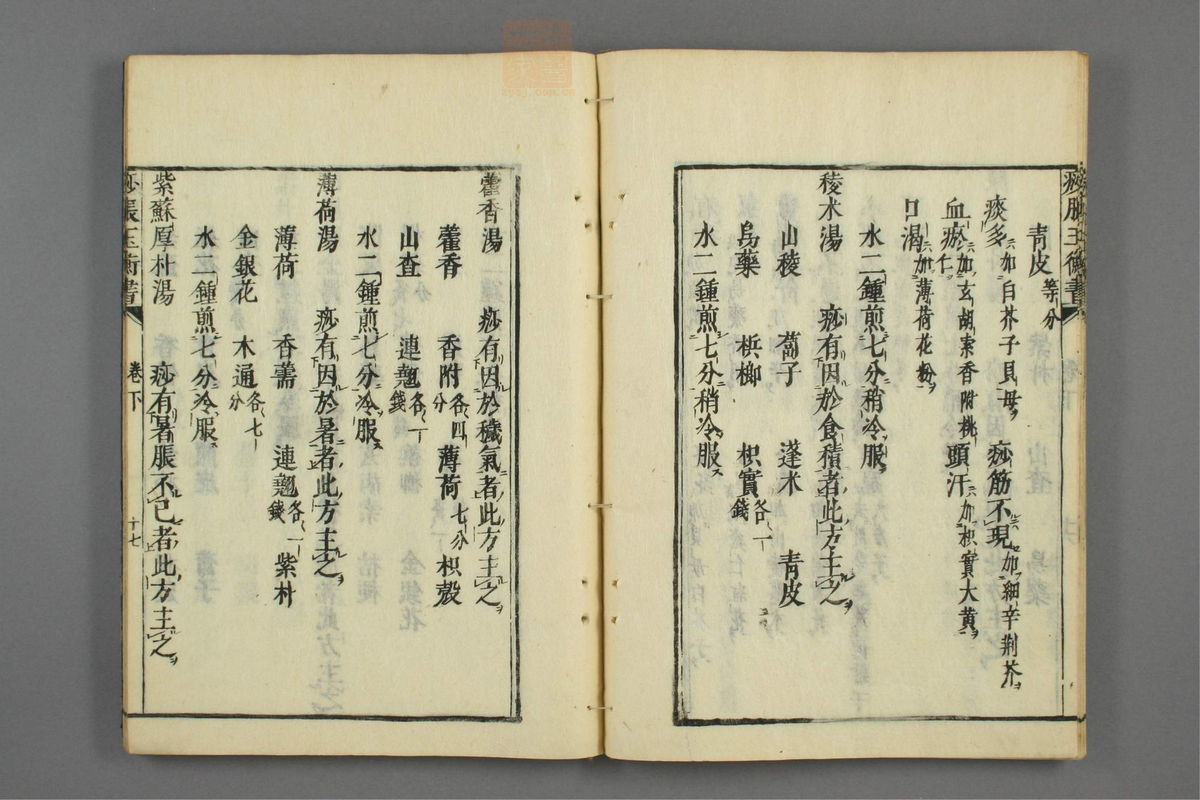 痧脹玉衡書
青皮等分
痰多加白芥子貝母 痧筋不現加細辛荆芥
血瘀加玄胡索香附桃仁 頭汗加枳實大黄
口渴加薄荷花粉
水二鍾煎七分稍冷服
稜朮湯 痧有因於食積者此方主之
山稜 蔔子 蓬朮 青皮
烏藥 梹榔 枳實各一錢
水二鍾煎七分稍冷服
藿香湯 痧有因於穢氣者此方主之
藿香 香附各四分 薄荷七分 枳殼
山查 連翹各一錢
水二鍾煎七分冷服
薄荷湯 痧有因於暑者此方主之
薄荷 香薷 連翹各一錢 紫朴
金銀花 木通各七分
水二鍾煎七分冷服
紫蘇厚朴湯 痧有暑脹不已者此方主之
痧脹玉衡書 卷下 十七